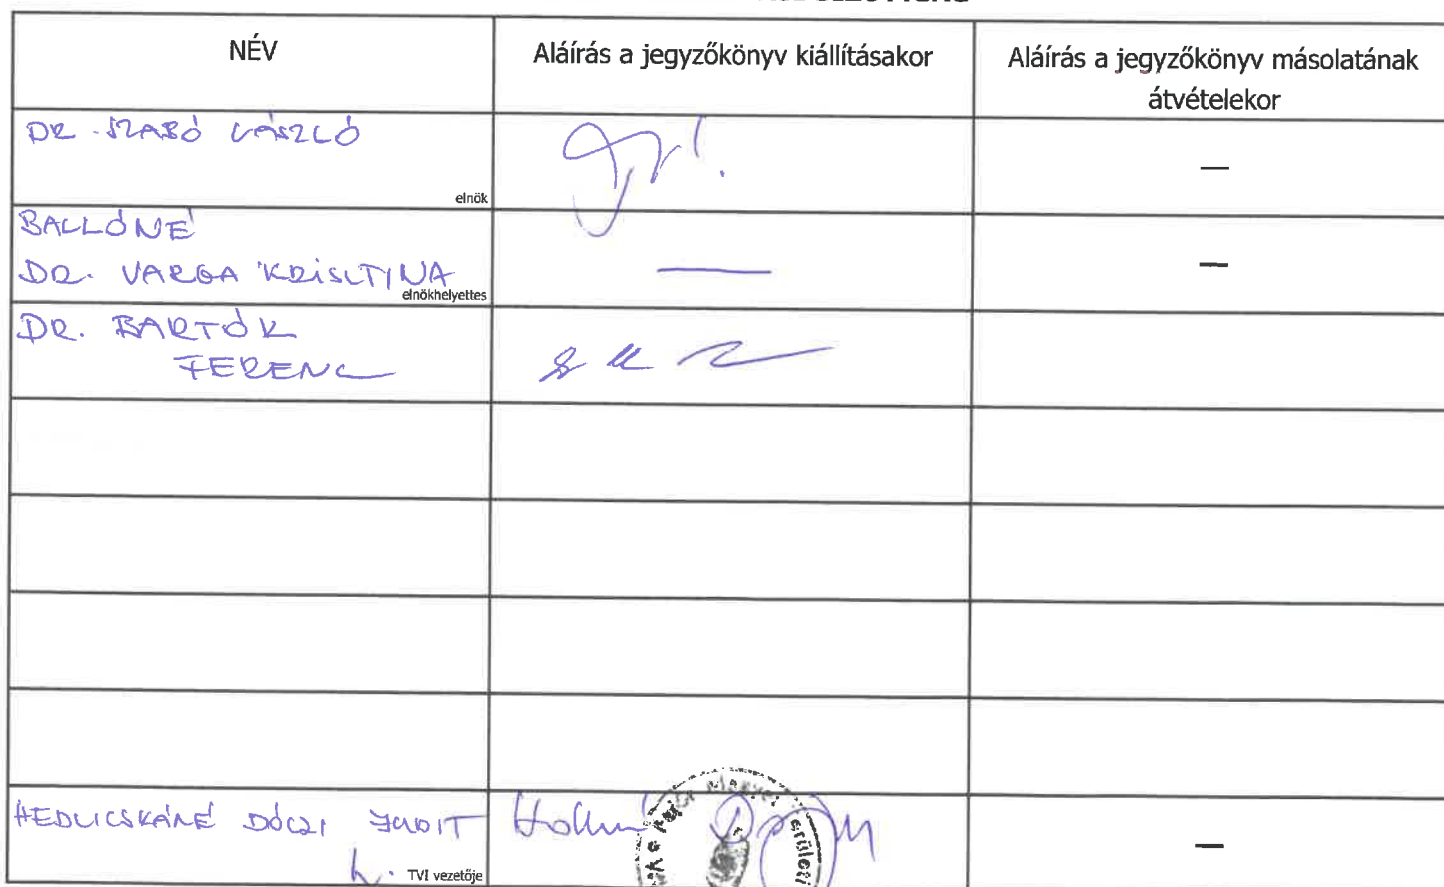 NÉV
Aláírás a jegyzőkönyv kiállításakor
Aláírás a jegyzőkönyv másolatának
átvételekor
DR. SZABÓ LÁSZLÓ
elnök
—
BALLÓNÉ
DR. VARGA KRISZTINA
elnökhelyettes
—
—
DR. BARTÓK
FERENC
HEDLICSKÁNÉ DÓCZI JUDIT
h. TVI vezetője
—